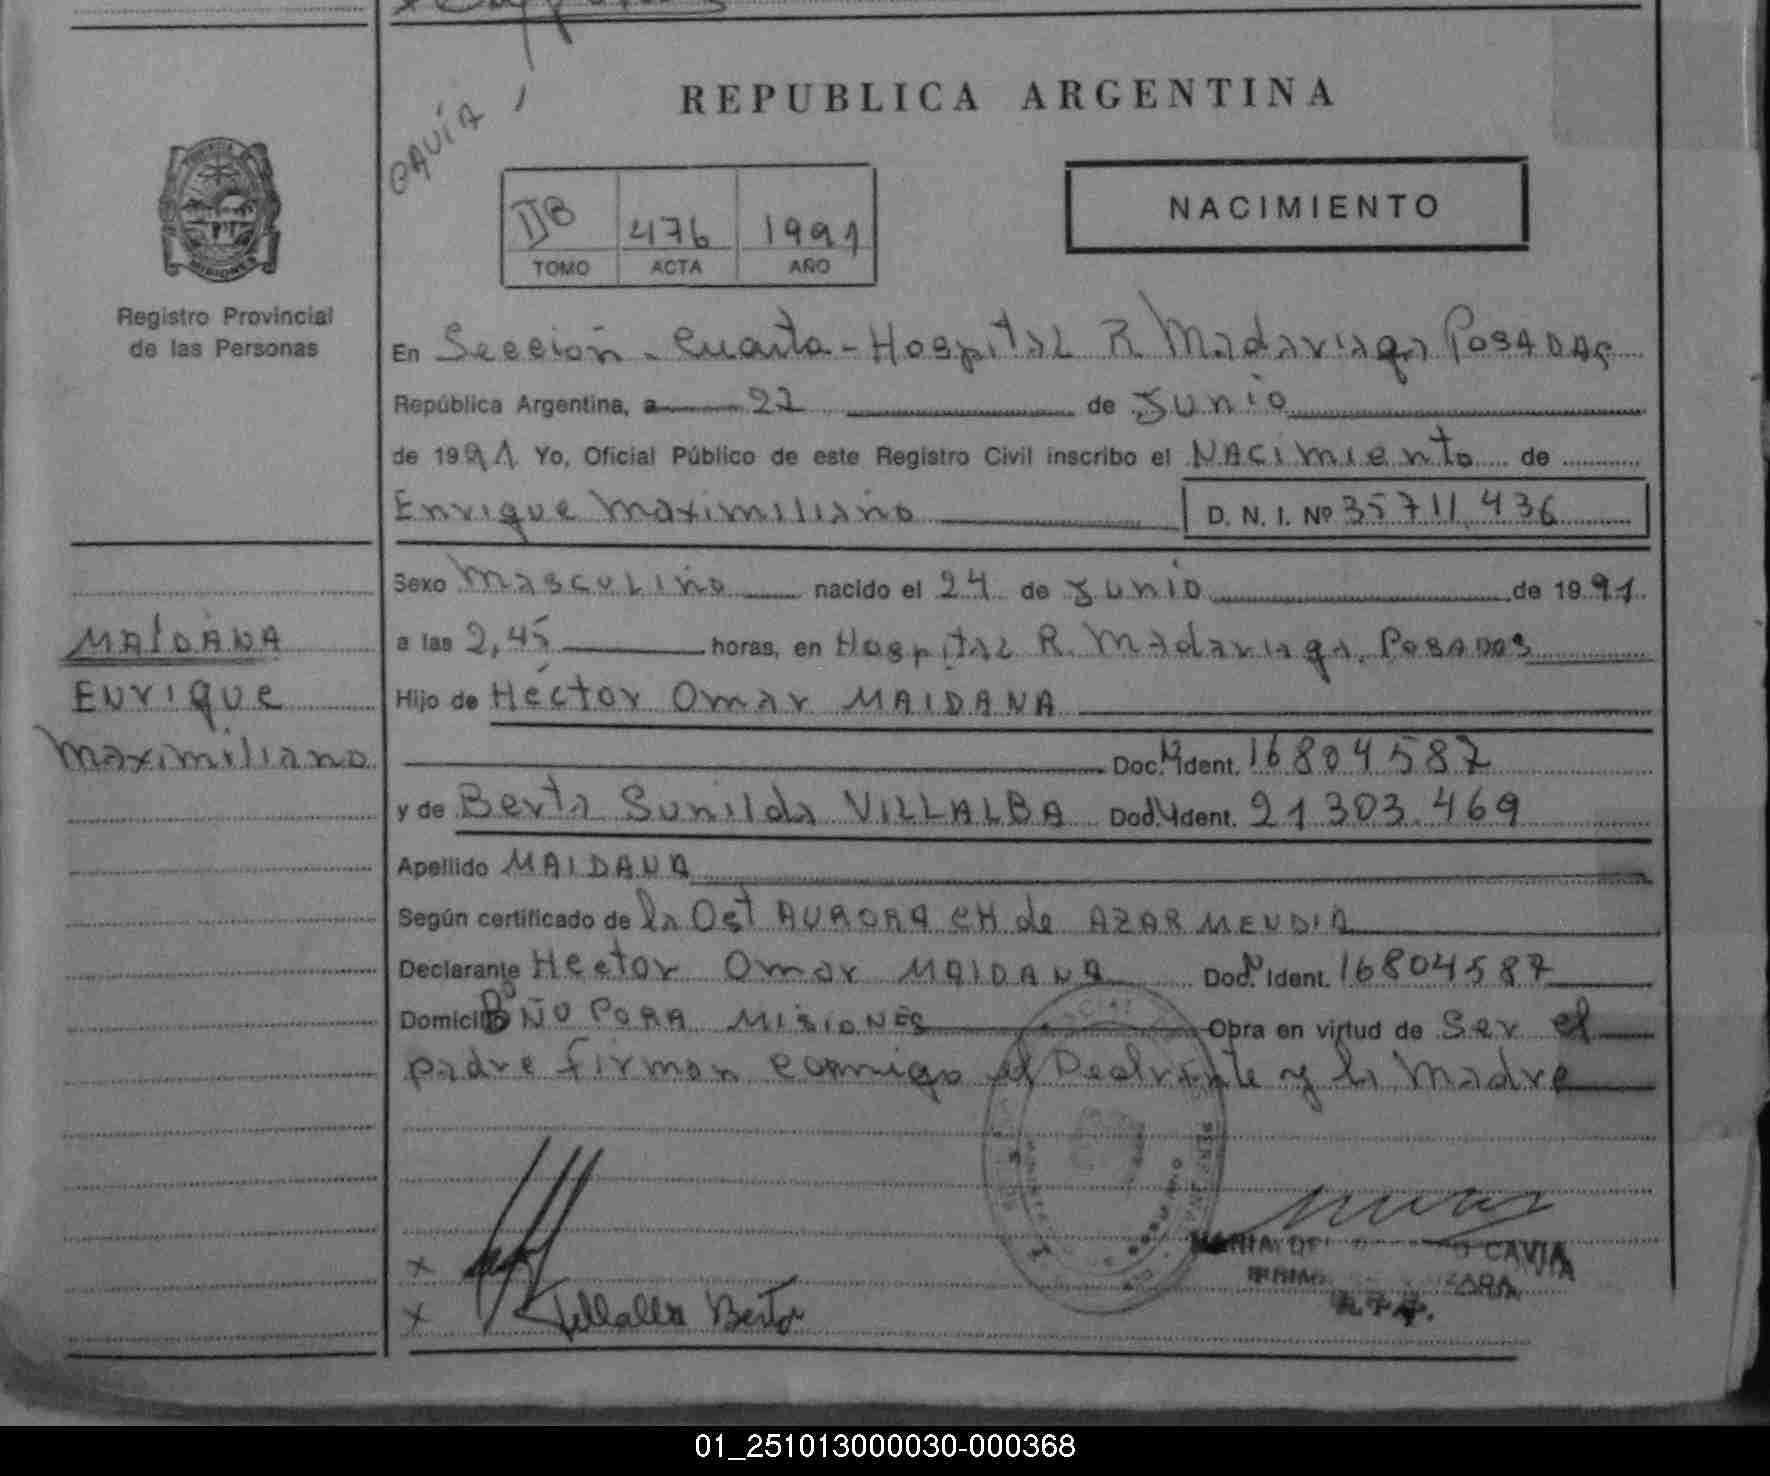 REPUBLICA ARGENTINA
CAVÍA
IJB 476 1991
TOMO ACTA AÑO
NACIMIENTO
Registro Provincial
de las Personas
En Sección - Cuarta - Hospital R Madariaga POSADAS
República Argentina, a 27 de Junio
de 1991 Yo, Oficial Público de este Registro Civil inscribo el NACimiento de
Enrique Maximiliano D. N. I. Nº 35711.436
Sexo Masculino nacido el 24 de Junio de 1991
a las 2,45 horas, en Hospital R. Madariaga, POSADAS
Hijo de Héctor Omar MAIDANA
Doc. Ident. 16804587
y de Berta Sunilda VILLALBA Doc. Ident. 21303.469
Apellido MAIDANA
Según certificado de la Ost AURORA CH de AZARMENDIA
Declarante Hector Omar MAIDANA Doc. Ident. 16804587
Domicilio Bº ÑU PORA MISIONES Obra en virtud de Ser el
padre firman conmigo el Declrante y la Madre
MAIDANA
ENRIQUE
Maximiliano
x
x Villalba Berta
MARIA DEL CAVIA
01_251013000030-000368